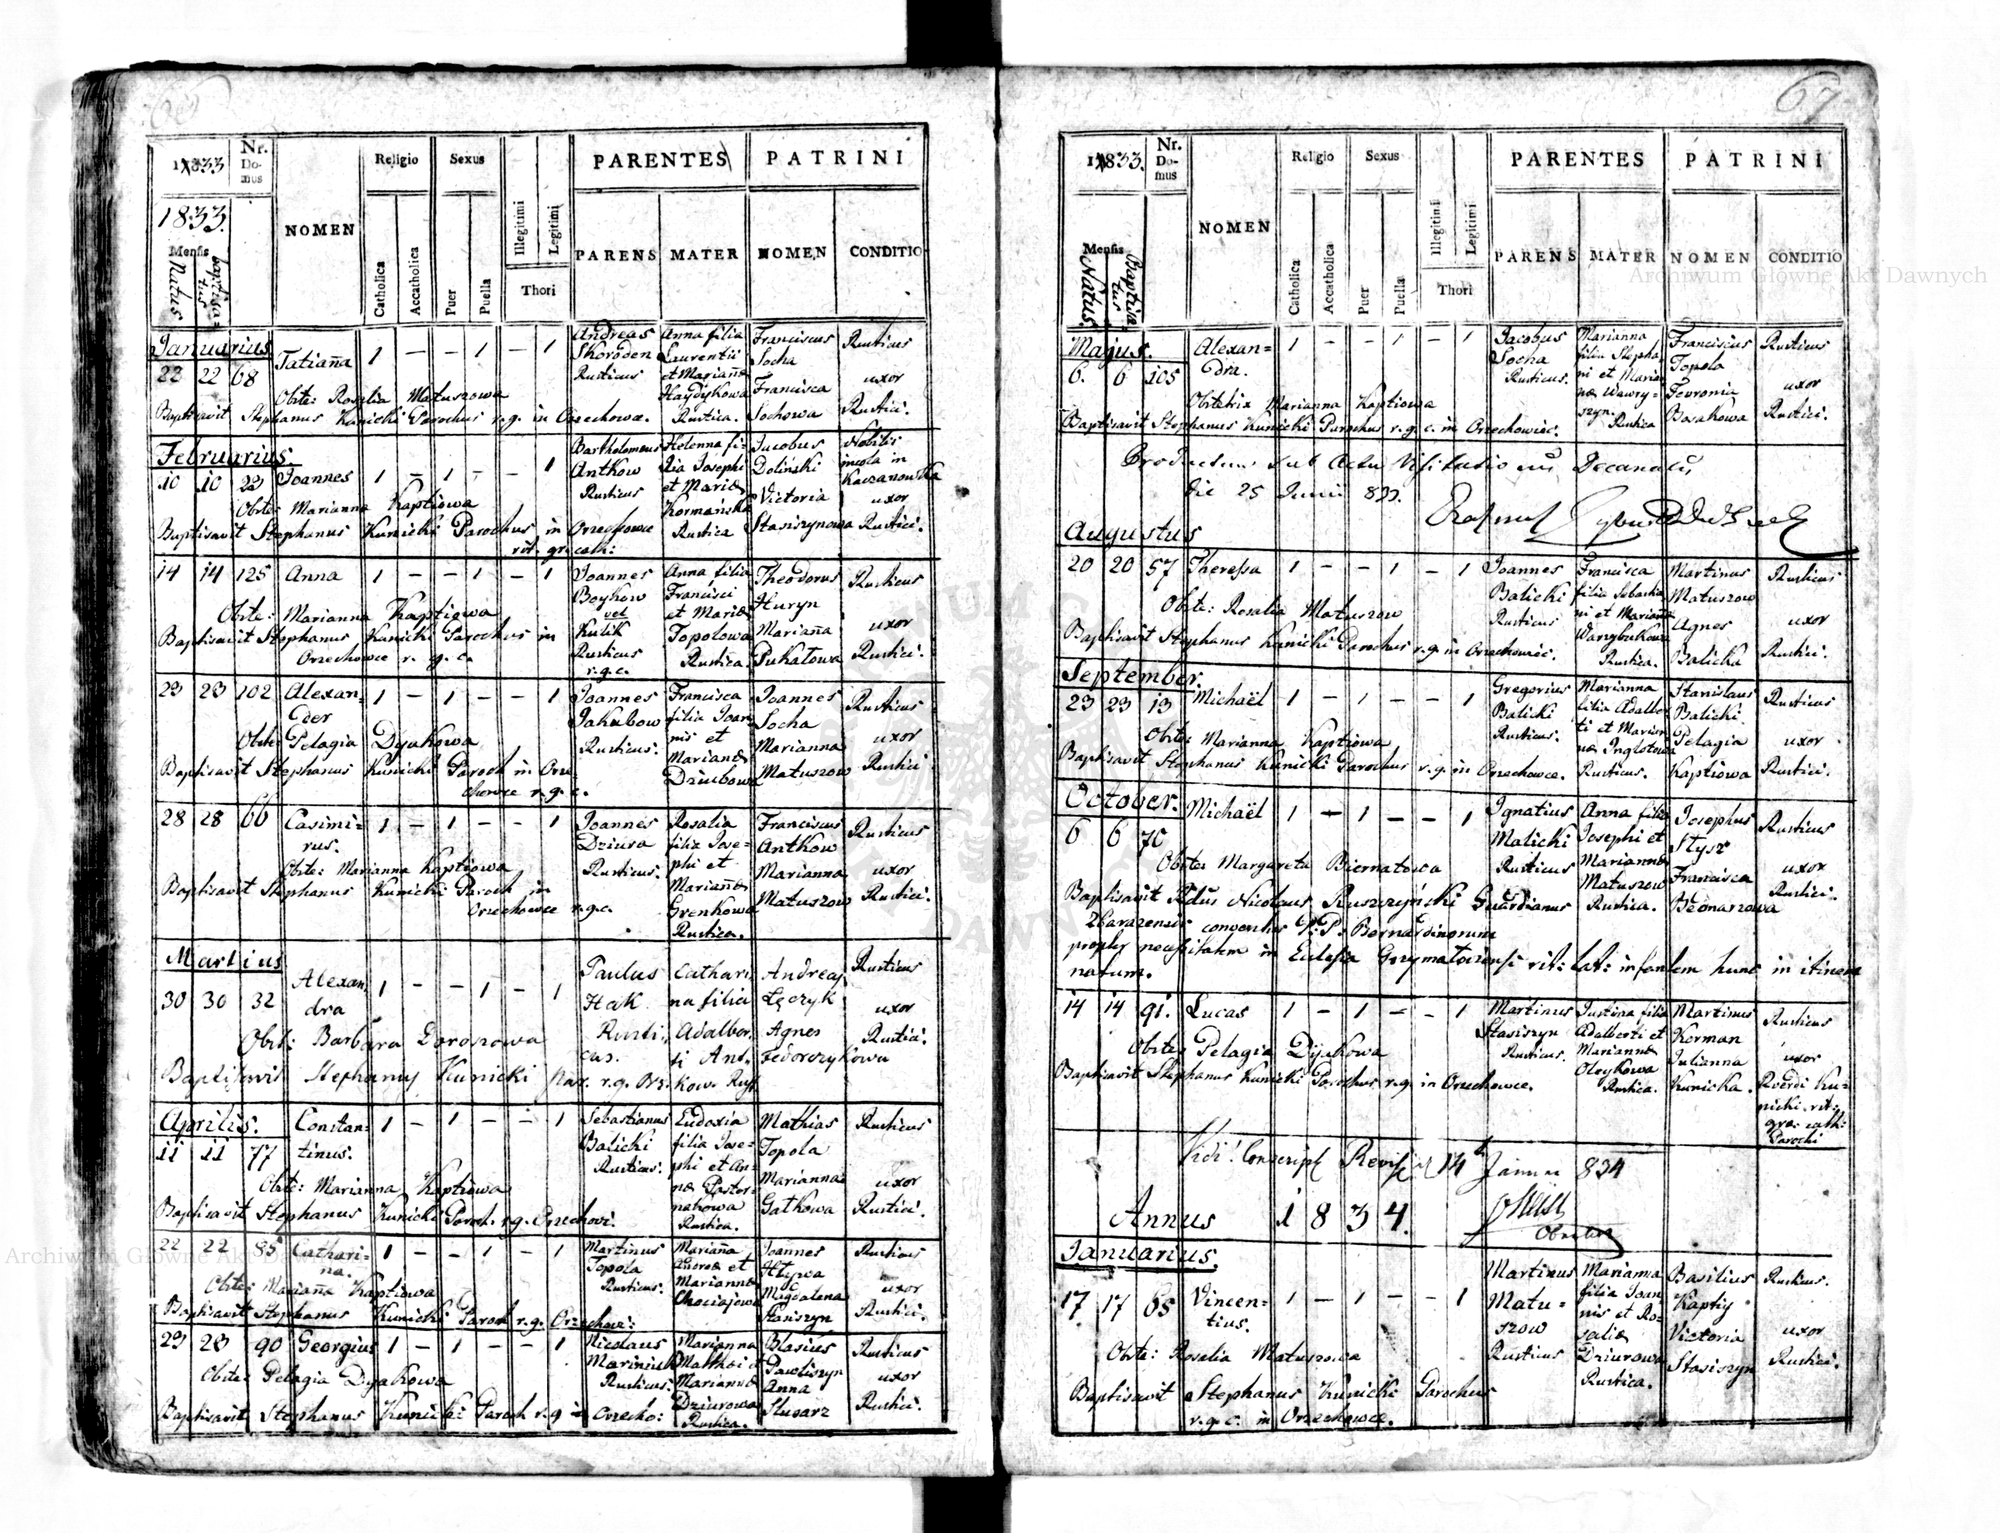 66
1833
Nr. Domus
NOMEN
Religio
Sexus
PARENTES
PATRINI
1833.
Mensis
Natus
baptisatus
Catholica
Accatholica
Puer
Puella
Illegitimi
Legitimi
Thori
PARENS
MATER
NOMEN
CONDITIO
Januarius
22 22 68 Tatiana 1 – – 1 – 1
Andreas Skoroden Rusticus
Anna filia Laurentii et Marianæ Haydykowa Rustica.
Franciscus Socha
Francisca Sochowa
Rusticus
uxor Rustici.
Obste: Rosalia Matuszowa
Baptisavit Stephanus Kunicki Parochus r.g. in Orzechowce.
Februarius
10 10 23 Joannes 1 – 1 – – 1
Bartholomeus Antkow Rusticus
Helenna filia Josephi et Mariæ Kormańska Rustica
Jacobus Doliński
Victoria Stasiszynowa
Nobilis incola in Kaczanowka
uxor Rustici.
Obste: Marianna Kaptiowa
Baptisavit Stephanus Kunicki Parochus in Orzechowce
rit. gr. cath:
14 14 125 Anna 1 – – 1 – 1
Joannes Boykow vel Kulik Rusticus r.g.c.
Anna filia Francisci et Mariæ Topolowa Rustica.
Theodorus Huryn
Mariana Pukatowa
Rusticus
uxor Rustici.
Obste: Marianna Kaptiowa
Baptisavit Stephanus Kunicki Parochus in
Orzechowce r. g. c.
23 23 102 Alexander 1 – 1 – – 1
Joannes Jakubow Rusticus.
Francisca filia Joannis et Marianæ Dziubowa
Joannes Socha
Marianna Matuszow
Rusticus
uxor Rustici
Obste: Pelagia Dyakowa
Baptisavit Stephanus Kunicki Paroch in Orze
chowce r.g.c.
28 28 66 Casimirus. 1 – 1 – – 1
Joannes Dziura Rusticus.
Rosalia filia Josephi et Marianæ Grenkowa Rustica.
Franciscus Antkow
Marianna Matuszow
Rusticus
uxor Rustici.
Obste: Marianna Kaptiowa
Baptisavit Stephanus Kunicki Paroch in
Orzechowce r.g.c.
Martius
30 30 32 Alexandra 1 – – 1 – 1
Paulus Hak Rusticus.
Catharina filia Adalberti Antkow Rust
Andreas Lęczyk
Agnes Fedorczykowa
Rusticus
uxor Rustici.
Obst: Barbara Doroszowa
Baptisavit Stephanus Kunicki Par. r.g. Orz.
Aprilis.
11 11 77 Constantinus. 1 – 1 – – 1
Sebastianus Balicki Rusticus.
Eudoxia filia Josephi et Annæ Pastornakowa Rustica.
Mathias Topola
Marianna Gatkowa
Rusticus
uxor Rustici.
Obste: Marianna Kaptiowa
Baptisavit Stephanus Kunicki Paroch. r.g. Orzechowi.
22 22 85 Catharina. 1 – – 1 – 1
Martinus Topola Rusticus.
Mariana Andreæ et Marianna Chociajowa
Joannes Hlywa
Magdalena Stasiszyn
Rusticus
uxor Rustici.
Obste: Mariana Kaptiowa
Baptisavit Stephanus Kunicki Paroch r.g. Orzechowi:
23 23 90 Georgius 1 – 1 – – 1
Nicolaus Mariniuk Rusticus.
Marianna Matthæi et Mariannæ Dziurowa Rustica.
Blasius Pawliszyn
Anna Slusarz
Rusticus
uxor Rustici.
Obste: Pelagia Dyakowa
Baptisavit Stephanus Kunicki Paroch r.g in Orzecho:
67
1833.
Nr. Domus
NOMEN
Religio
Sexus
PARENTES
PATRINI
Mensis
Natus.
Baptisatus
Catholica
Accatholica
Puer
Puella
Illegitimi
Legitimi
Thori
PARENS
MATER
NOMEN
CONDITIO
Majus.
6. 6 105 Alexandra. 1 – – 1 – 1
Jacobus Socha Rusticus.
Marianna filia Stephani et Mariannæ Wawryszyn. Rustica
Franciscus Topola
Fevronia Bosakowa
Rusticus
uxor Rustici.
Obstetrix Marianna Kaptiowa
Baptisavit Stephanus Kunicki Parochus r.g.c. in Orzechowiec.
Productum sub Actu Visitationis Decanalis
die 25 Junii 833.
Augustus
20 20 57 Theressa 1 – – 1 – 1
Joannes Balicki Rusticus
Francisca filia Sebastiani et Mariana Warzybukowa Rustica.
Martinus Matuszow
Agnes Balicka
Rusticus
uxor Rustici.
Obste: Rosalia Matuszow
Baptisavit Stephanus Kunicki Parochus r.g. in Orzechowiec.
September.
23 23 13 Michaël 1 – 1 – – 1
Gregorius Balicki Rusticus.
Marianna filia Adalberti et Mariannæ Inglotowa Rusticus.
Stanislaus Balicki.
Pelagia Kaptiowa
Rusticus
uxor Rustici.
Obste: Marianna Kaptiowa
Baptisavit Stephanus Kunicki Parochus r.g. in Orzechowce.
October.
6 6 70 Michaël 1 – 1 – – 1
Ignatius Malicki Rusticus
Anna filia Josephi et Mariannæ Matuszow Rustica.
Josephus Stysz
Francisca Bednarzowa
Rusticus
uxor Rustici.
Obste: Margareta Biernatowa
Baptisavit Rdus Nicolaus Ruszczyński Guardianus
Zbarazensis conventus P.P. Bernardinorum
propter necessitatem in Eclesia Grzymatoviensi rit: lat: infantem hunc in itinere
natum.
14 14 91. Lucas 1 – 1 – – 1
Martinus Stasiszyn Rusticus.
Justina filia Adalberti et Mariannæ Olrykowa Rustica.
Martinus Korman
Julianna Kunicka.
Rusticus
uxor Rverdi Kunicki rit: græ: cath: Parochi
Obste: Pelagia Dyakowa
Baptisavit Stephanus Kunicki Parochus r.g. in Orzechowce.
Vidi Conscript Revis 14 Januar 834
Annus 1834.
Januarius.
17 17 65 Vincentius. 1 – 1 – – 1
Martinus Matuszow Rusticus
Marianna filia Joannis et Rosaliæ Dziurowa Rustica.
Basilius Kaptiy
Victoria Stasiszyn
Rusticus.
uxor Rustici.
Obste: Rosalia Matuszowa
Baptisavit Stephanus Kunicki Parochus
r.g.c. in Orzechowce.
Archiwum Główne Akt Dawnych
Archiwum Główne Akt Dawnych